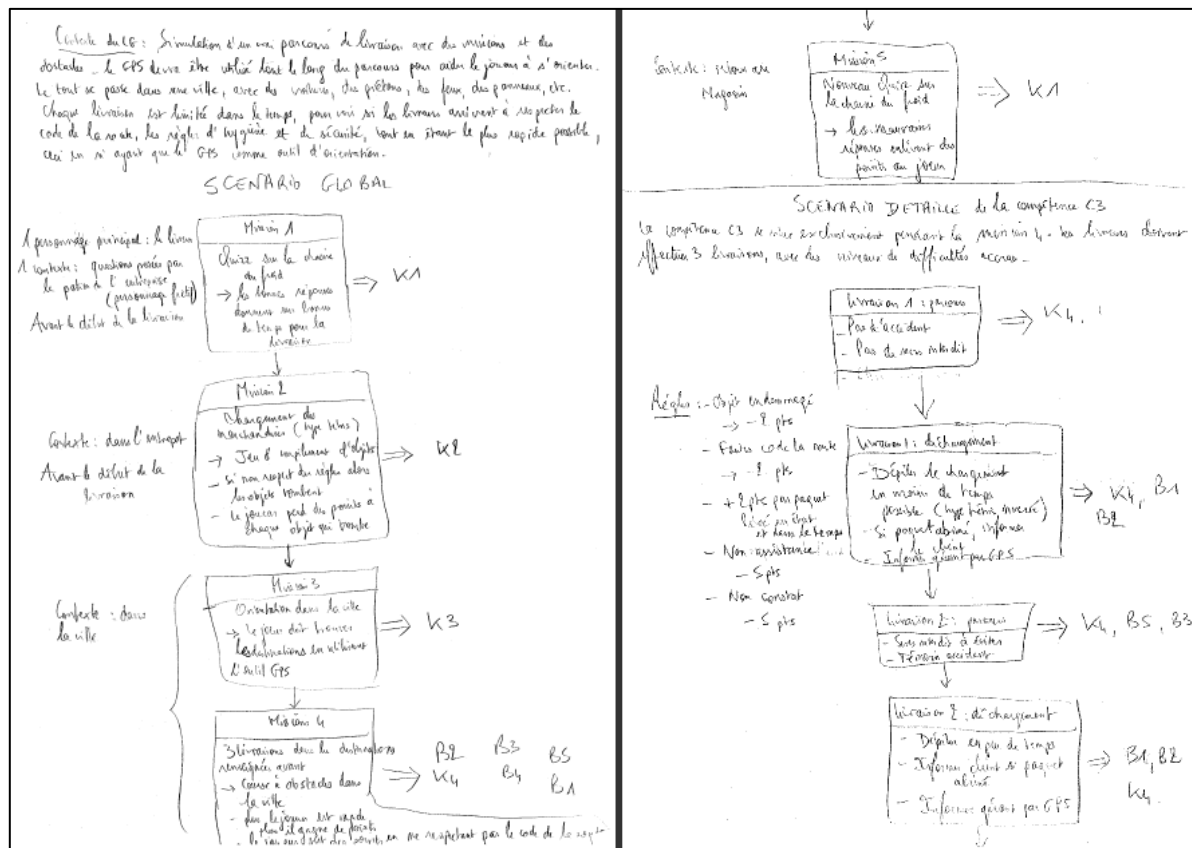 Contexte du CG : Simulation d'un vrai parcours de livraison avec des missions et des
obstacles. le GPS devra être utilisé tout le long du parcours pour aider le joueur à s'orienter.
Le tout se passe dans une ville, avec des voitures, des piétons, des feux, des panneaux, etc.
Chaque livraison est limitée dans le temps, pour voir si les livreurs arrivent à respecter le
code de la route, les règles d'hygiène et de sécurité, tout en étant le plus rapide possible,
ceci en n'ayant que le GPS comme outil d'orientation.
SCENARIO GLOBAL
1 personnage principal : le livreur
1 contexte : questions posées par
le patron de l'entreprise
(personnage fictif)
Avant le début de la livraison
Mission 1
Quizz sur la chaine
du froid
→ les bonnes réponses
donnent un bonus
de temps pour la
livraison
⇒ K1
Contexte : dans l'entrepôt
Avant le début de la
livraison
Mission 2
Chargement des
marchandises (type tetris)
→ Jeu d'empilement d'objets
- si non respect des règles alors
les objets tombent
- le joueur perd des points à
chaque objet qui tombe
⇒ K2
Contexte : dans
la ville
Mission 3
Orientation dans la ville
→ le joueur doit trouver
les destinations en utilisant
l'outil GPS
⇒ K3
Mission 4
3 livraisons dans les destinations
renseignées avant
→ Course à obstacles dans
la ville
- plus le joueur est rapide
plus il gagne de points
en ne respectant pas le code de la route
⇒ B2 B3 B5
K4 B4 B1
Contexte : retour au
Magasin
Mission 5
Nouveau Quizz sur
la chaine du froid
→ les mauvaises
réponses enlèvent des
points au joueur
⇒ K1
SCENARIO DETAILLÉ de la compétence C3
La compétence C3 se vise exclusivement pendant la mission 4. Les livreurs doivent
effectuer 3 livraisons, avec des niveaux de difficultés accrus.
Livraison 1 : parcours
- Pas d'accident
- Pas de sens interdit
⇒ K4,
Règles : - Objet endommagé
→ -2 pts
- Fautes code de la route
→ -2 pts
- +2 pts par paquet
livré en état
et dans le temps
- Non assistance
- 5 pts
- Non constat
- 5 pts
Livraison 1 : déchargement
- Dépiler le chargement
en moins de temps
possible (type tétris inversé)
- Si paquet abimé, informer
le client
- Informer gérant par GPS
⇒ K4, B1
B2
Livraison 2 : parcours
- Sens interdit à éviter
- Témoin accident
⇒ K4, B5, B3
Livraison 2 : déchargement
- Dépiler en peu de temps
- Informer client si paquet
abimé
- Informer gérant par GPS
⇒ B1, B2
K4.